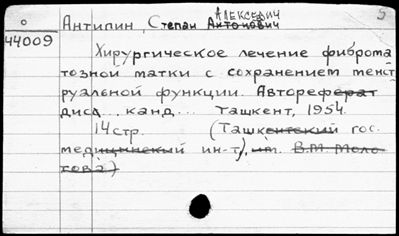 АЛЕКСЕВИЧ 5
О Антипин, Степан Антонович
44009
Хирургическое лечение фиброма
тозной матки с сохранением менст
руальной функции. Автореферат
дисд... канд... Ташкент, 1954.
14 стр. (Ташкентский гос.
медицинский ин-т), им. В.М. Моло
това)